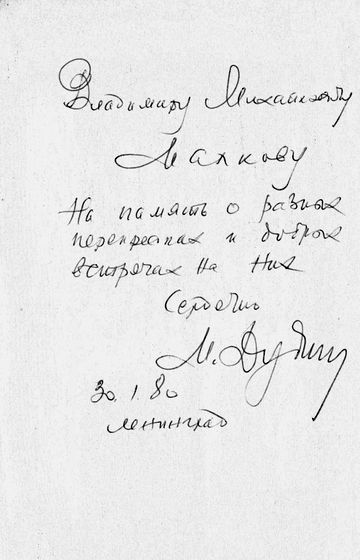 Владимиру Михайловичу
Малкову
На память о разных
перекрестках и добрых
встречах на них
Сердечно
М. Дудин
30.1.80
Ленинград